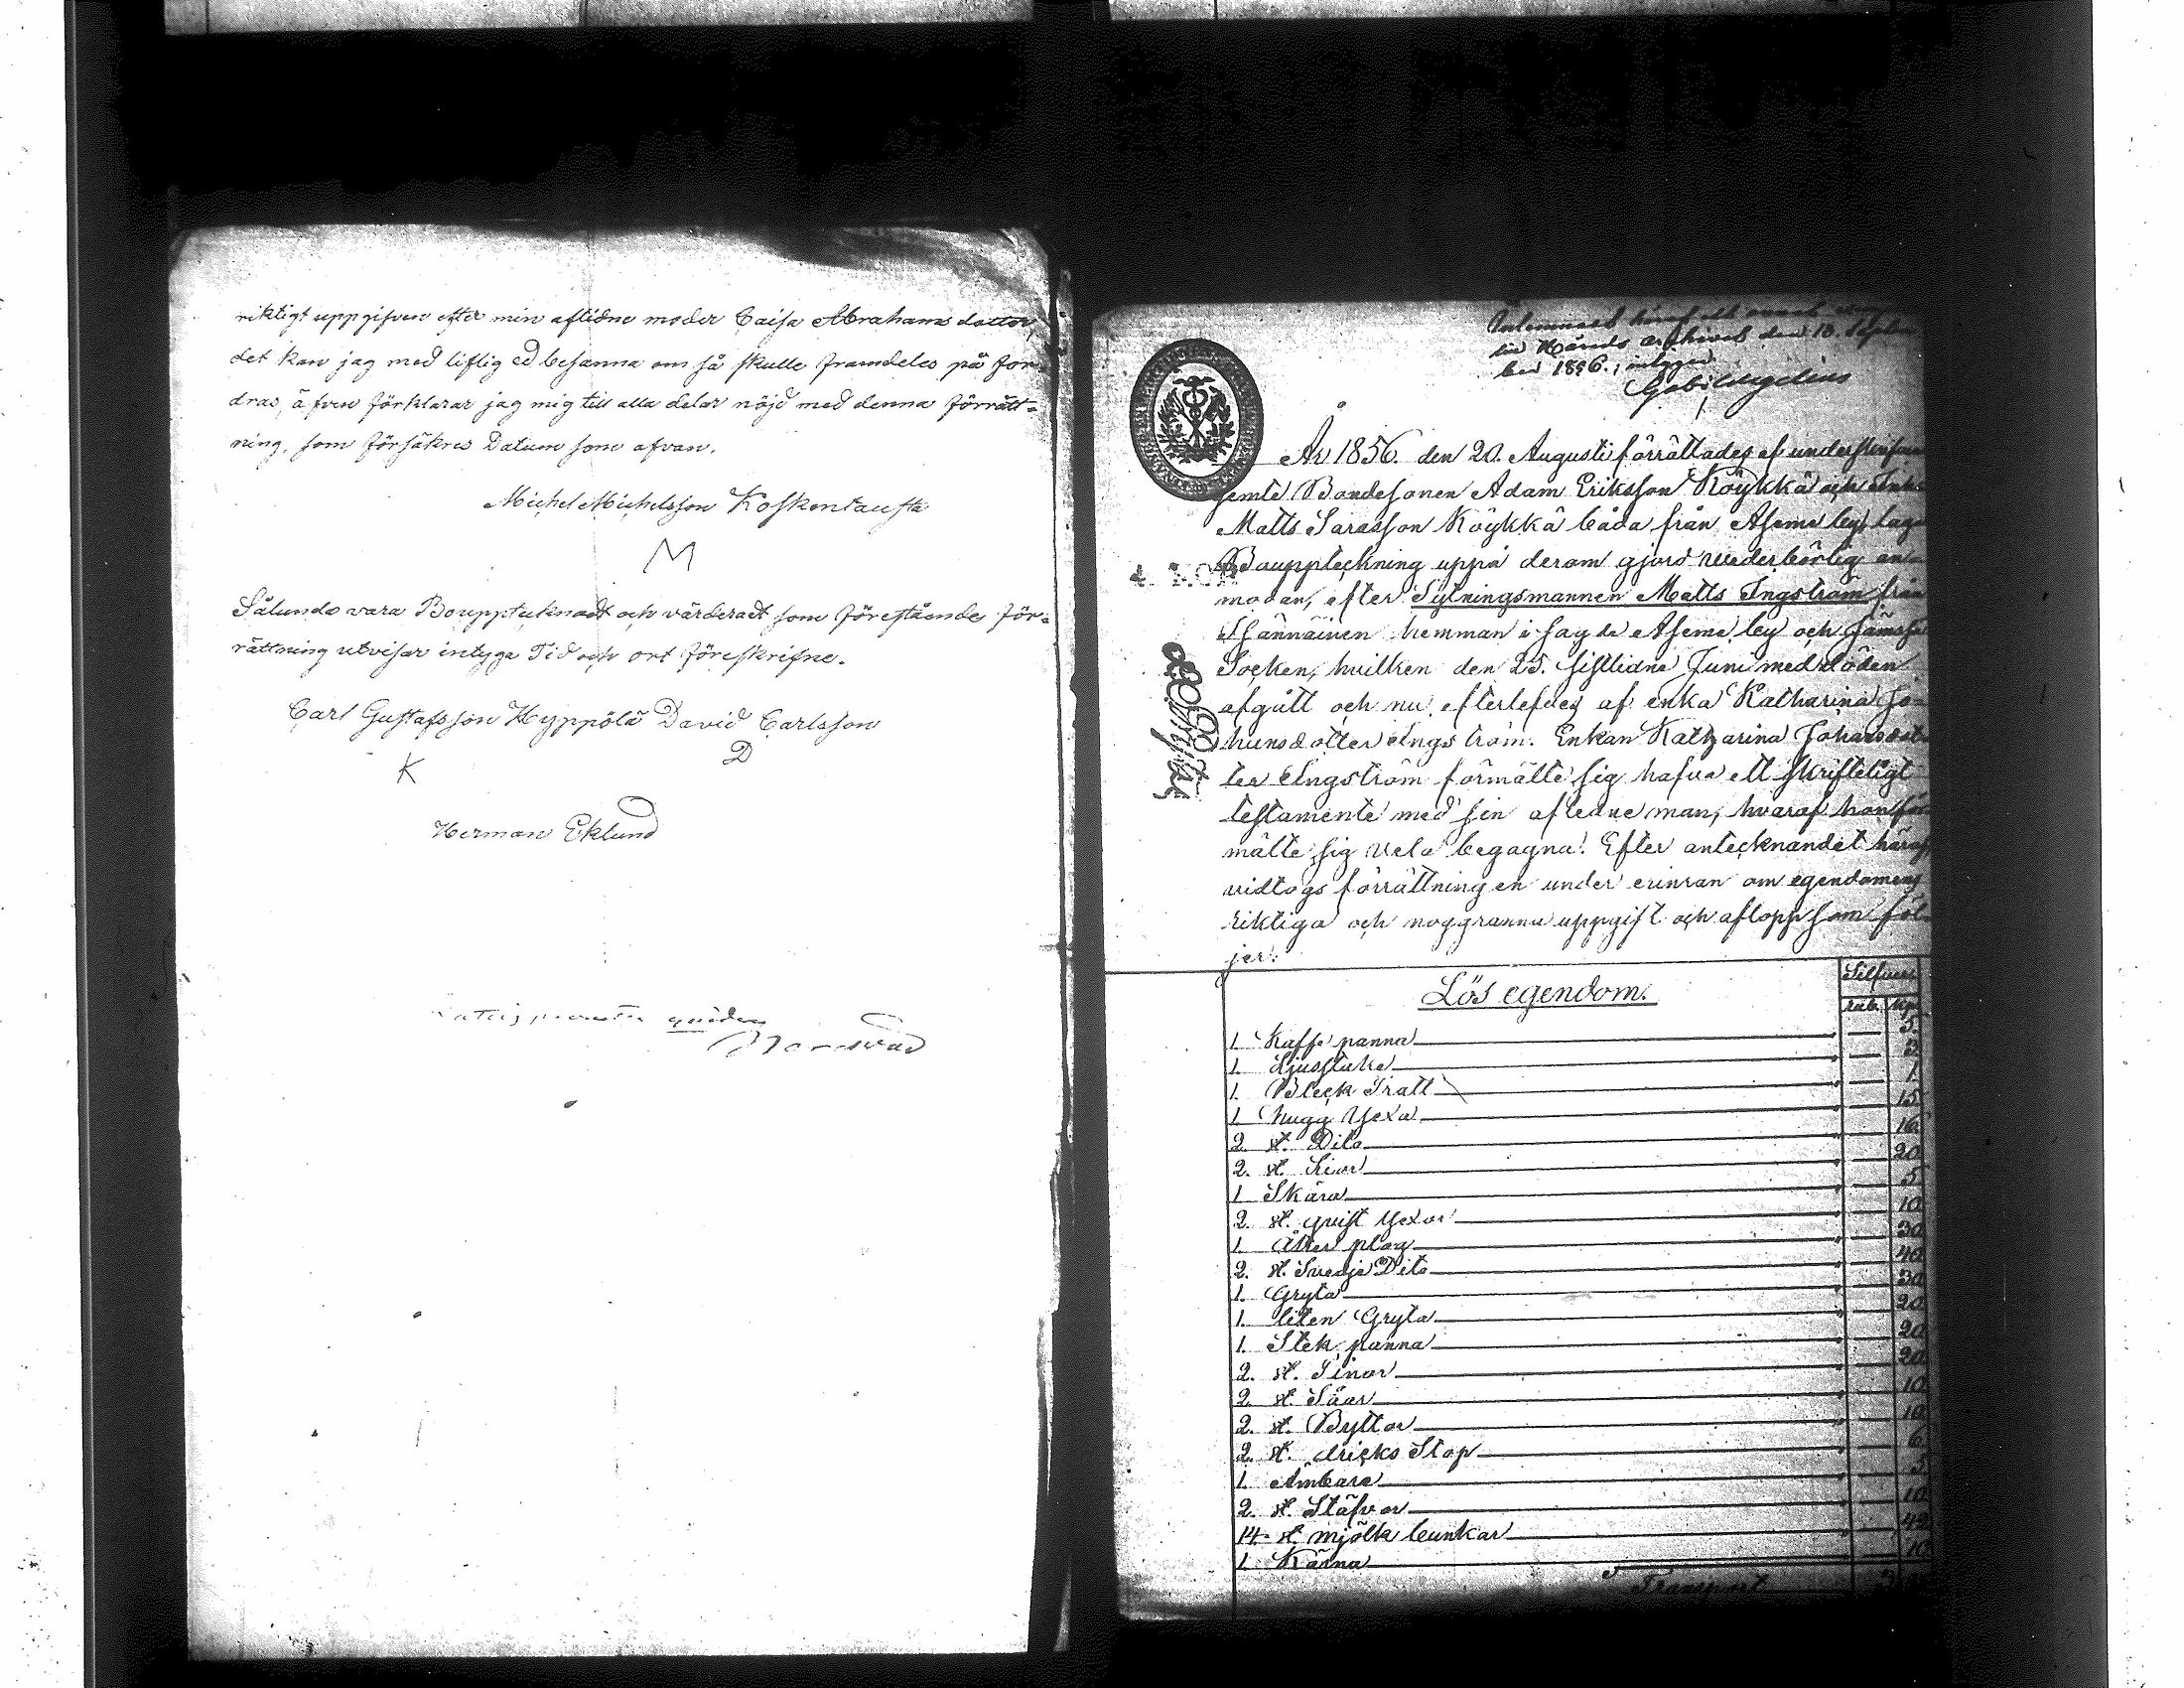 riktigt uppgifven efter min aflidne moder Caisa Abrahams dotter,
det kan jag med liflig ed besanna om så skulle framdeles på for-
dras, äfven förklarar jag mig till alla delar nöjd med denna förrätt-
ning, som försäkras Datum som ofvan.
Michel Michelsson Koskentausta
M
Sålunda vara Bouppteknadt och värderadt som förestående för-
rättning utvisar intyga Tid och ort föreskrifne.
Carl Gustafsson Hyppölä David Carlsson
K D
Herman Eklund
Inlemnadt häraf ett
till Härads archivet den 13. Septem
ber 1856., intygar
År 1856. den 20. Augusti förrättades af underskrifven
jemte Bondesonen Adam Eriksson Köykkä och
Matts Sarasson Köykkä båda från Aseme by, laga
Bouppteckning uppå derom gjord vederbörlig an-
modan, efter Sytningsmannen Matts Ingström från
hemman i sagde Aseme by och
Socken, hvilken den 25. sistlidne Juni med döden
afgått och nu efterlefdes af enka Katharina Jo-
hansdotter Ingström. Enkan Katharina Johansdot-
ter Ingström förmälte sig hafva ett skrifteligt
testamente med sin aflidne man, hvaraf hon för
mälte sig vela begagna. Efter antecknandet häraf
vidtogs förrättningen under erinran om egendomens
riktiga och noggranna uppgift och aflopp som föl-
jer:
Lös egendom. Silfver
rub. kop.
1. Kaffe panna " — 5.
1. Ljusstake " — 3.
1. Bleck Tratt " — 1.
1. hugg Yxa " — 15
2. st. Dito " — 16
2. st. Liar " — 20
1. Skära " — 5
2. st. qvist Yxor " — 10
1. Åker plog " — 30
2. st. Svedje Dito " — 40
1. Gryta " — 30
1. liten Gryta " — 20
1. Stek panna " — 20
2. st. Tinor " — 20
2. st. Såar " — 10
2. st. Byttor " — 10
2. st. dricks Stop " — 6
1. Ämbare " — 5
2. st. Stäfvor " — 10
14. st. mjölk bunkar " — 42
1. Kärna " — 10
Transport